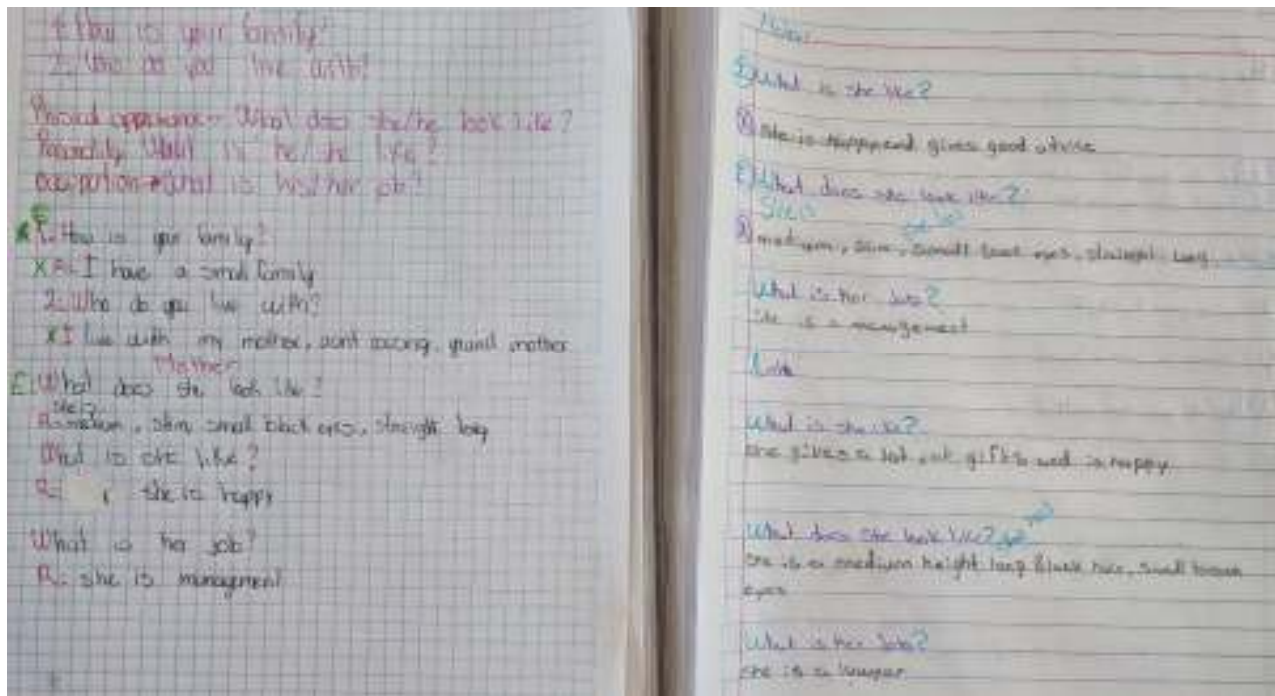 1. How is your family?
2. Who do you live with?
Physical appearance - What does she/he look like?
Personality What is he/she like?
occupation → What is his/her job?
How is your family?
R: I have a small family
2. Who do you live with?
I live with my mother, aunt, grand mother
Mother
E: What does she look like?
she is
R: medium, slim, small black eyes, straight long
What is she like?
R: she is happy
What is her job?
R: she is managment
What is she like?
She is happy and gives good advise
What does she look like?
She is
medium, slim, small eyes, straight long
What is her job?
she is a management
What is she like?
she gives a lot of gifts and is happy
What does she look like?
she is a medium height long black hair, small brown
eyes
What is her job?
she is a